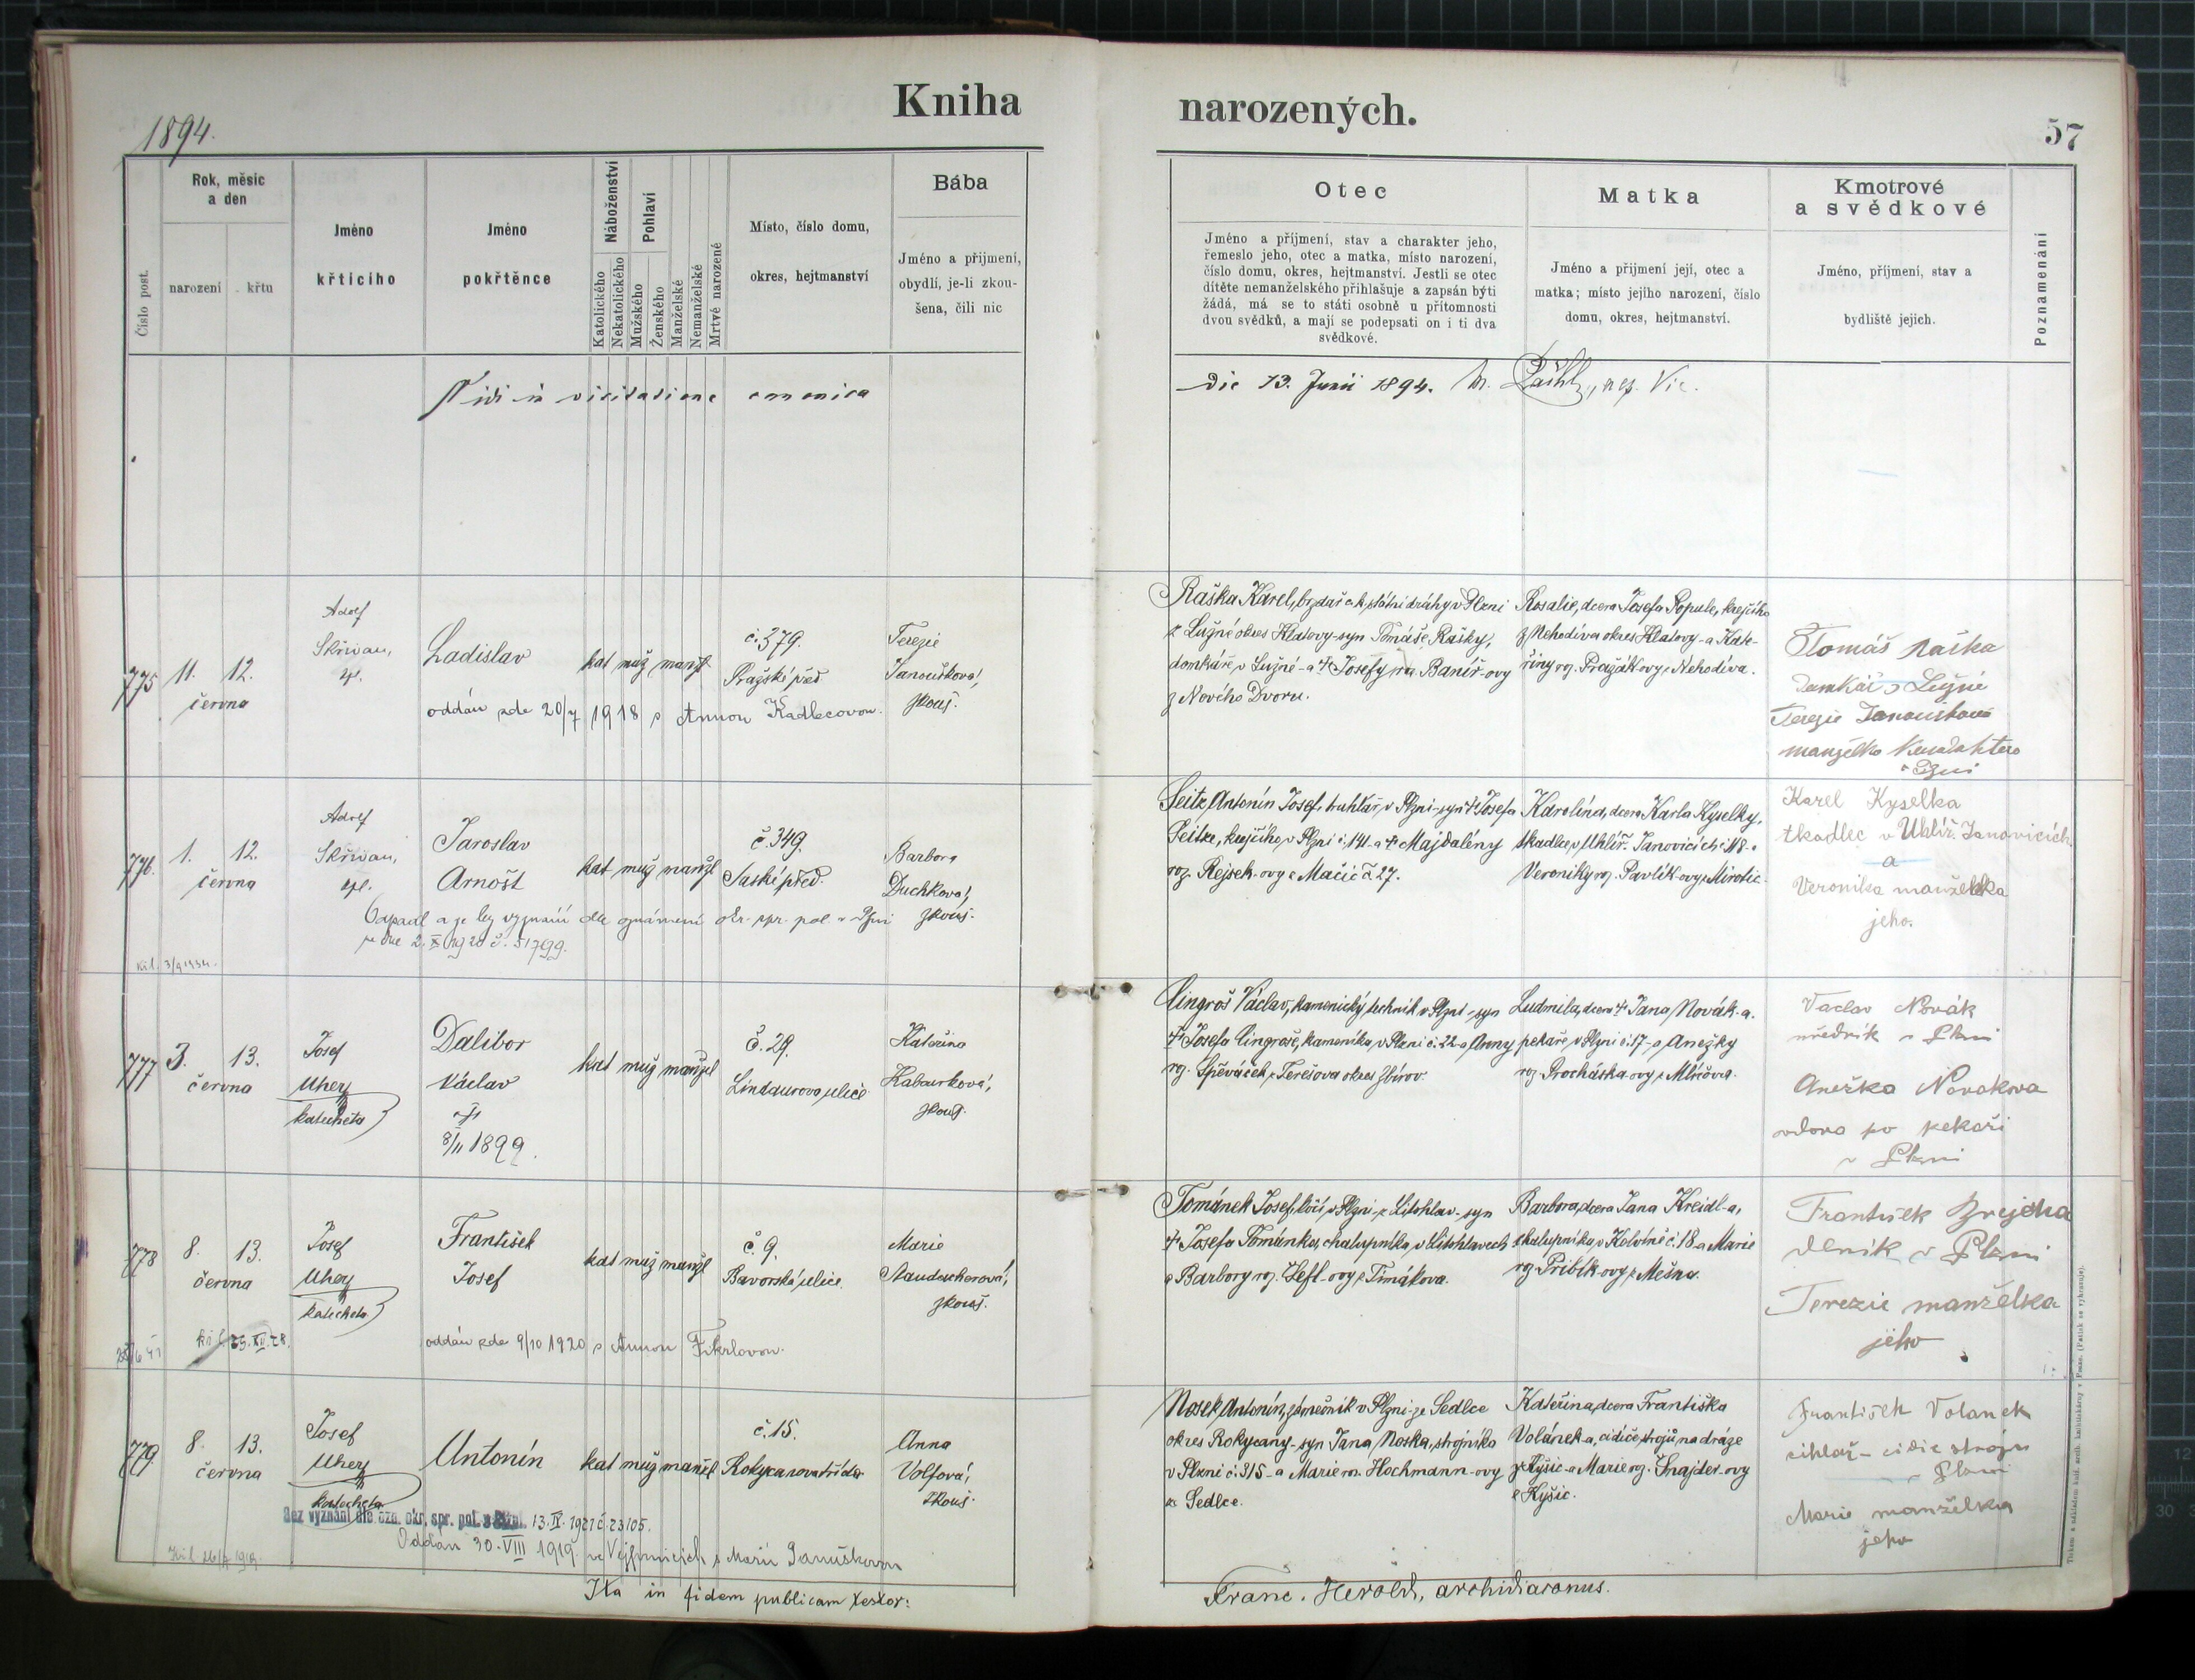 1894.
Kniha
narozených.
57
Číslo post.
Rok, měsíc
a den
narození
křtu
Jméno
křtícího
Jméno
pokřtěnce
Náboženství
Katolického
Nekatolického
Pohlaví
Mužského
Ženského
Manželské
Nemanželské
Mrtvé narozené
Místo, číslo domu,
okres, hejtmanství
Bába
Jméno a příjmení,
obydlí, je-li zkou-
šena, čili nic
Otec
Jméno a příjmení, stav a charakter jeho,
řemeslo jeho, otec a matka, místo narození,
číslo domu, okres, hejtmanství. Jestli se otec
dítěte nemanželského přihlašuje a zapsán býti
žádá, má se to státi osobně u přítomnosti
dvou svědků, a mají se podepsati on i ti dva
svědkové.
Matka
Jméno a příjmení její, otec a
matka; místo jejího narození, číslo
domu, okres, hejtmanství.
Kmotrové
a svědkové
Jméno, příjmení, stav a
bydliště jejich.
Poznamenání
Vidi in visitatione canonica
die 13. Junii 1894.
775
11. 12.
června
Adolf
Skřivan,
Ladislav
kat muž manžl
č. 379.
Pražské před.
Terezie
Janoušková,
zkouš.
oddán zde 20/7 1918 s Annou Kadlecovou.
Raška Karel, brzdař c.k. státní dráhy v Plzni
z Lužné okres Klatovy-syn Tomáše Rašky,
domkáře v Lužné-a † Josefy roz. Baníř-ovy
z Nového Dvoru.
Rosalie, dcera Josefa Popule, krejčího
z Nehodíva okres Klatovy-a Kate-
řiny roz. Pražák-ovy z Nehodíva.
Tomáš Raška
Domkář v Lužné
Terezie Janoušková
manželka
v Plzni
776.
1. 12.
června
Adolf
Skřivan,
Jaroslav
Arnošt
kat muž manžl
č. 349.
Saské před.
Barbora
Duchková,
zkouš.
Odpadl a je bez vyznání dle oznámení okr. spr. pol. v Plzni
ze dne 2. X 1920 č. 51799.
Seitz Antonín Josef, truhlář v Plzni-syn † Josefa
Seitze, krejčího v Plzni č. 141-a † Majdalény
roz. Rejsek-ovy z Mačic č. 27.
Karolina, dcera Karla Kyselky,
tkadlce v Uhlíř. Janovicích č. 118-a
Veroniky roz. Pavlík-ovy z Mirotic.
Karel Kyselka
tkadlec v Uhlíř. Janovicích
a
Veronika manželka
jeho.
777
3. 13.
června
Josef
Uhez
katecheta
Dalibor
Václav
†
8/II 1899.
kat muž manžel
č. 29.
Lindaurova ulice
Kateřina
Kabourková,
zkouš.
Cingroš Václav, kamenický technik v Plzni-syn
† Josefa Cingroše, kameníka v Plzni č. 22-a Anny
roz. Spěváček z Terešova okres Zbirov.
Ludmila, dcera † Jana Novák-a,
pekaře v Plzni č. 17-a Anežky
roz. Procházka-ovy z Mlíčova.
Vaclav Novák
uředník v Plzni
Anežka Novakova
vdova po pekaři
v Plzni
778
8. 13.
června
Josef
Uhez
katecheta
František
Josef
kat muž manžl
č. 9.
Bavorská ulice.
Marie
Standacherová,
zkouš.
oddán zde 9/10 1920 s Annou Fikrlovou.
Tománek Josef, kočí v Plzni-z Litohlav-syn
† Josefa Tománka, chalupníka v Litohlavech
a Barbory roz. Hefl-ovy z Timákova.
Barbora, dcera Jana Kreidl-a,
chalupníka v Kolvíně č. 18-a Marie
roz. Pribík-ovy z Mešna.
František Brejcha
dělník v Plzni
Terezie manželka
jeho
779
8. 13.
června
Josef
Uhez
katecheta
Antonín
kat muž manžel
č. 15.
Rokycanova třída
Anna
Volfová,
zkouš.
Bez vyznání dle ozn. okr. spr. pol. v Plzni. 13. IV. 1921 č. 23105.
Oddán 30. VIII 1919. ve Vejprnicích s Marií Janouškovou
Nosek Antonín, zámečník v Plzni-ze Sedlce
okres Rokycany-syn Jana Noska, strojníka
v Plzni č. 315-a Marie roz. Hochmann-ovy
ze Sedlce.
Kateřina, dcera Františka
Volánek-a, cídiče strojů na dráze
z Kyšic-a Marie roz. Šnajder-ovy
z Kyšic.
František Volanek
cihlář-cidič strojů
v Plzni
Marie manželka
jeho
Ita in fidem publicam testor:
Franc. Herold, archidiaconus.